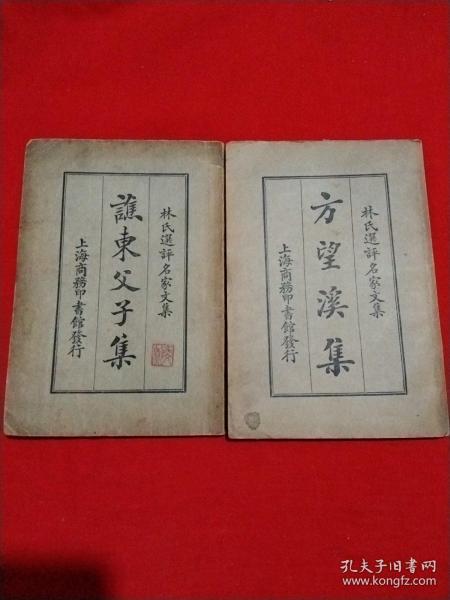 林氏選評名家文集
譙東父子集
上海商務印書館發行
林氏選評名家文集
方望溪集
上海商務印書館發行
孔夫子旧书网
www.kongfz.com